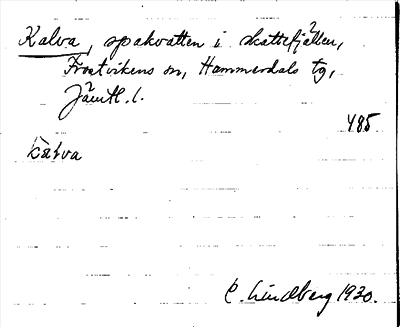 Kalva, spakvatten i skattefjällen,
Frostvikens sn, Hammerdals tg,
Jämtl. l.
485
kàlva
C. Lindberg 1930.